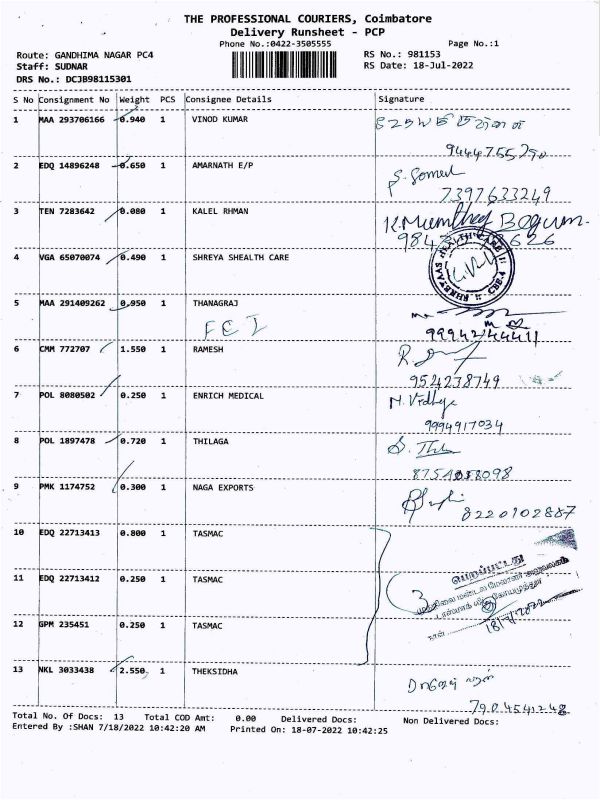 THE PROFESSIONAL COURIERS, Coimbatore
Delivery Runsheet - PCP
Phone No.:0422-3505555
Page No.:1
Route: GANDHIMA NAGAR PC4
RS No.: 981153
Staff: SUDNAR
RS Date: 18-Jul-2022
DRS No.: DCJB98115301
S No Consignment No Weight PCS Consignee Details Signature
1 MAA 293706166 0.940 1 VINOD KUMAR
9444755290
2 EDQ 14896248 0.650 1 AMARNATH E/P
7397633249
3 TEN 7283642 0.080 1 KALEL RHMAN
K.Mumthaj Begum.
4 VGA 65070074 0.490 1 SHREYA SHEALTH CARE
HEALTH CARE
5 MAA 291409262 0.950 1 THANAGRAJ
FCI
9994244411
6 CMM 772707 1.550 1 RAMESH
9524238749
7 POL 8080502 0.250 1 ENRICH MEDICAL
N. Vidhya
9994917034
8 POL 1897478 0.720 1 THILAGA
9 PMK 1174752 0.300 1 NAGA EXPORTS
8220102887
10 EDQ 22713413 0.800 1 TASMAC
பெறப்பட்டது
11 EDQ 22713412 0.250 1 TASMAC
3
12 GPM 235451 0.250 1 TASMAC
நாள்
18/7/2022
13 NKL 3033438 2.550 1 THEKSIDHA
7904541248
Total No. Of Docs: 13 Total COD Amt: 0.00 Delivered Docs: Non Delivered Docs:
Entered By :SHAN 7/18/2022 10:42:20 AM Printed On: 18-07-2022 10:42:25